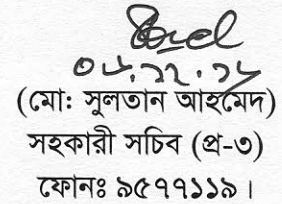 (মো: সুলতান আহমেদ)
সহকারী সচিব (প্র-৩)
ফোনঃ ৯৫৭৭১১৯।